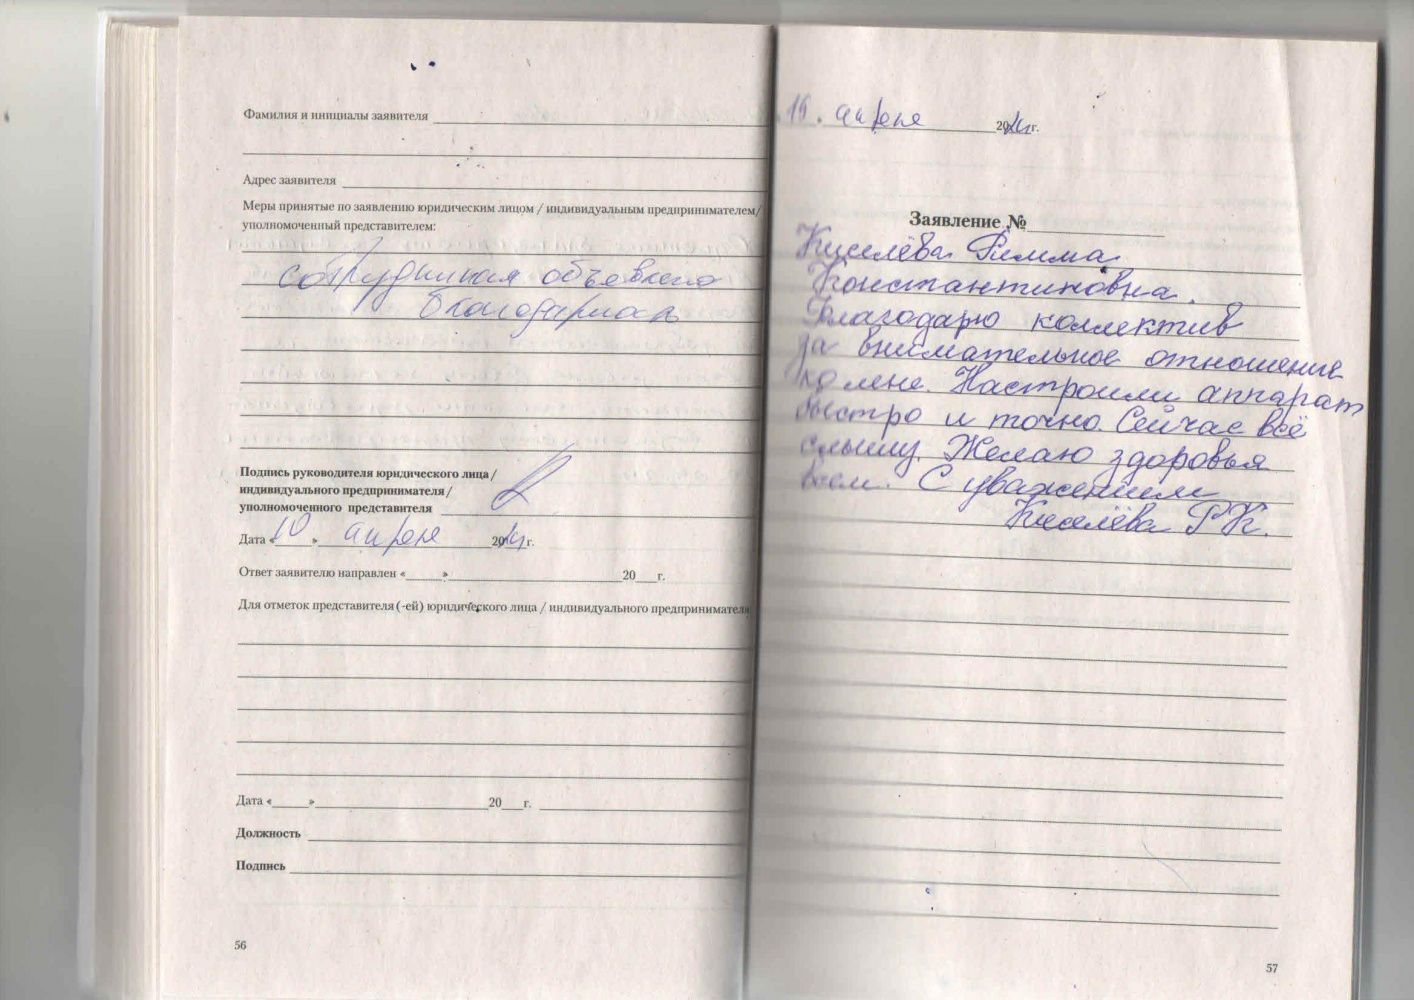 Фамилия и инициалы заявителя
Адрес заявителя
Меры принятые по заявлению юридическим лицом / индивидуальным предпринимателем/
уполномоченный представителем:
сотрудникам объявлена
благодарность
Подпись руководителя юридического лица /
индивидуального предпринимателя /
уполномоченного представителя
Дата « 10 » апреля 20 г.
Ответ заявителю направлен « » 20 г.
Для отметок представителя (-ей) юридического лица / индивидуального предпринимателя
Дата « » 20 г.
Должность
Подпись
56
апреля 20 г.
Заявление №
Киселёва Римма
Константиновна.
Благодарю коллектив
за внимательное отношение
ко мне. Настроили аппарат
быстро и точно. Сейчас всё
слышу. Желаю здоровья
всем. С уважением
Киселёва Р.К.
57